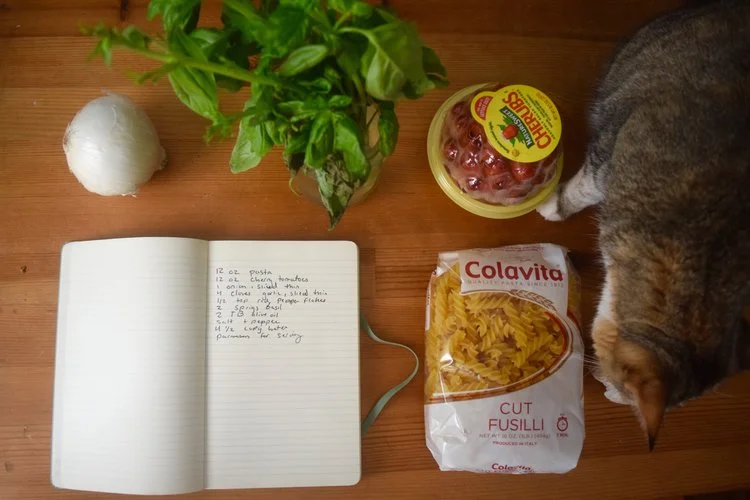 NATURESWEET
CHERUBS
Colavita
QUALITY PASTA SINCE 1912
CUT
FUSILLI
NET WT. 16 OZ. (1LB.) (454g)
PRODUCED IN ITALY
7 MIN.
Colavita
12 oz pasta
12 oz cherry tomatoes
1 onion, sliced thin
4 cloves garlic, sliced thin
1/2 tsp red pepper flakes
2 sprigs basil
2 TB olive oil
salt + pepper
4 1/2 cups water
parmesan for serving